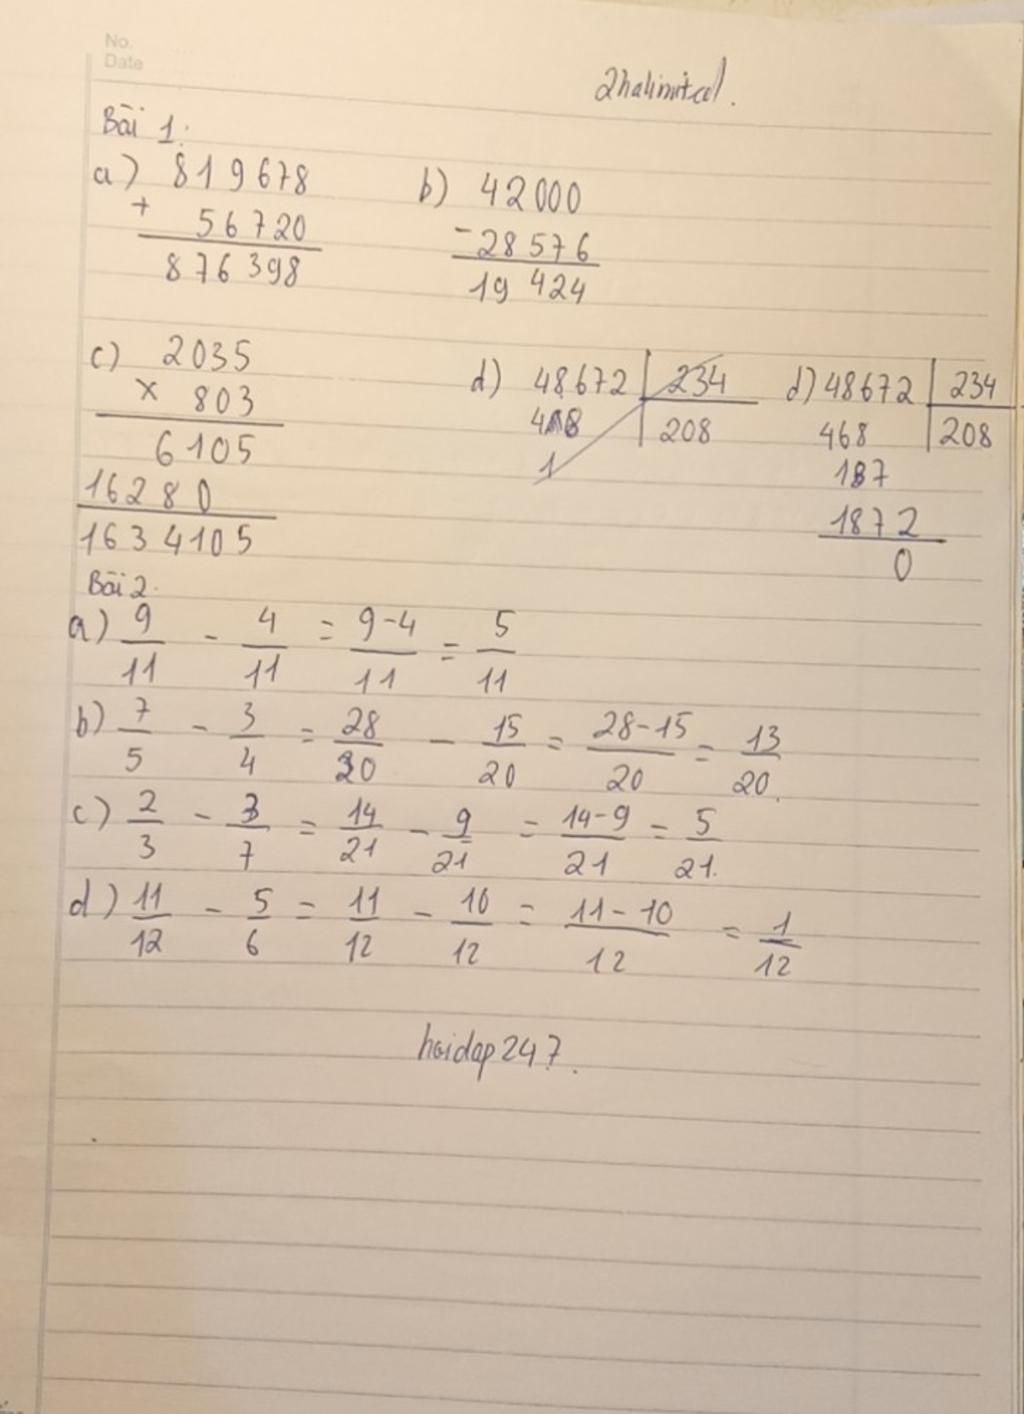 No.
Date
2halimitcd.
Bài 1:
a) 819678
+ 56720
876398
b) 42000
- 28576
19424
c) 2035
x 803
6105
16280
1634105
d) 48672 234
468 208
1
d) 48672 234
468 208
187
1872
0
Bài 2.
a) 9/11 - 4/11 = 9-4/11 = 5/11
b) 7/5 - 3/4 = 28/20 - 15/20 = 28-15/20 = 13/20.
c) 2/3 - 3/7 = 14/21 - 9/21 = 14-9/21 = 5/21.
d) 11/12 - 5/6 = 11/12 - 10/12 = 11-10/12 = 1/12
hoidap247.